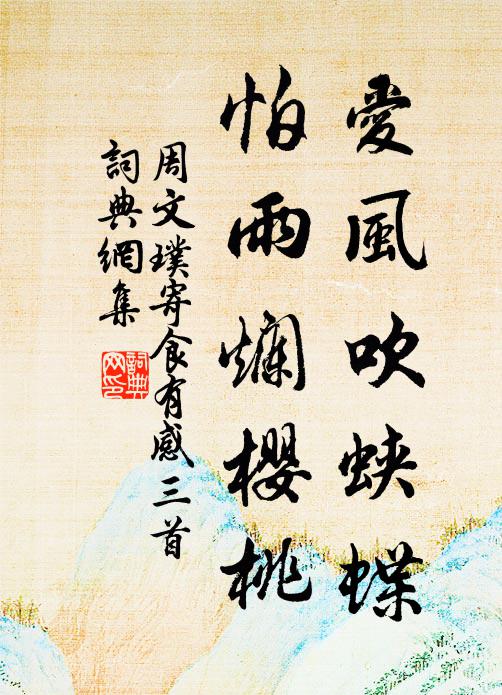 愛風吹蛺蝶
怕雨爛櫻桃
周文璞寄食有感三首
詞典網集
詞典网印